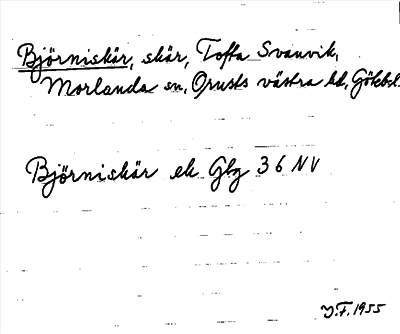 Björniskär, skär, Tofta Svanvik,
Morlanda sn, Orusts västra hd, Götebl.
Björniskär ek Gbg 36 NV
J.F. 1955